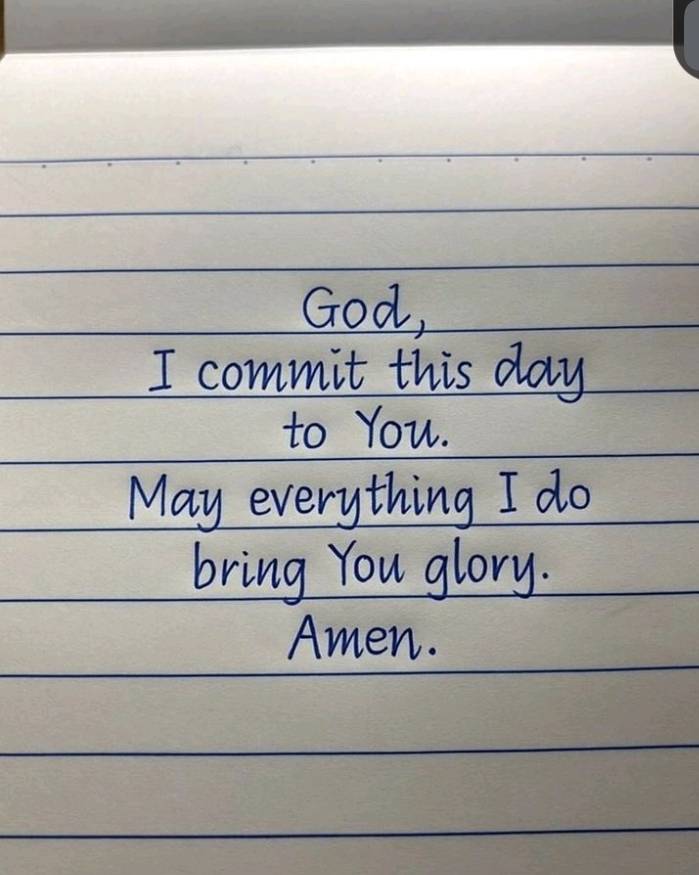 God,
I commit this day
to You.
May everything I do
bring You glory.
Amen.